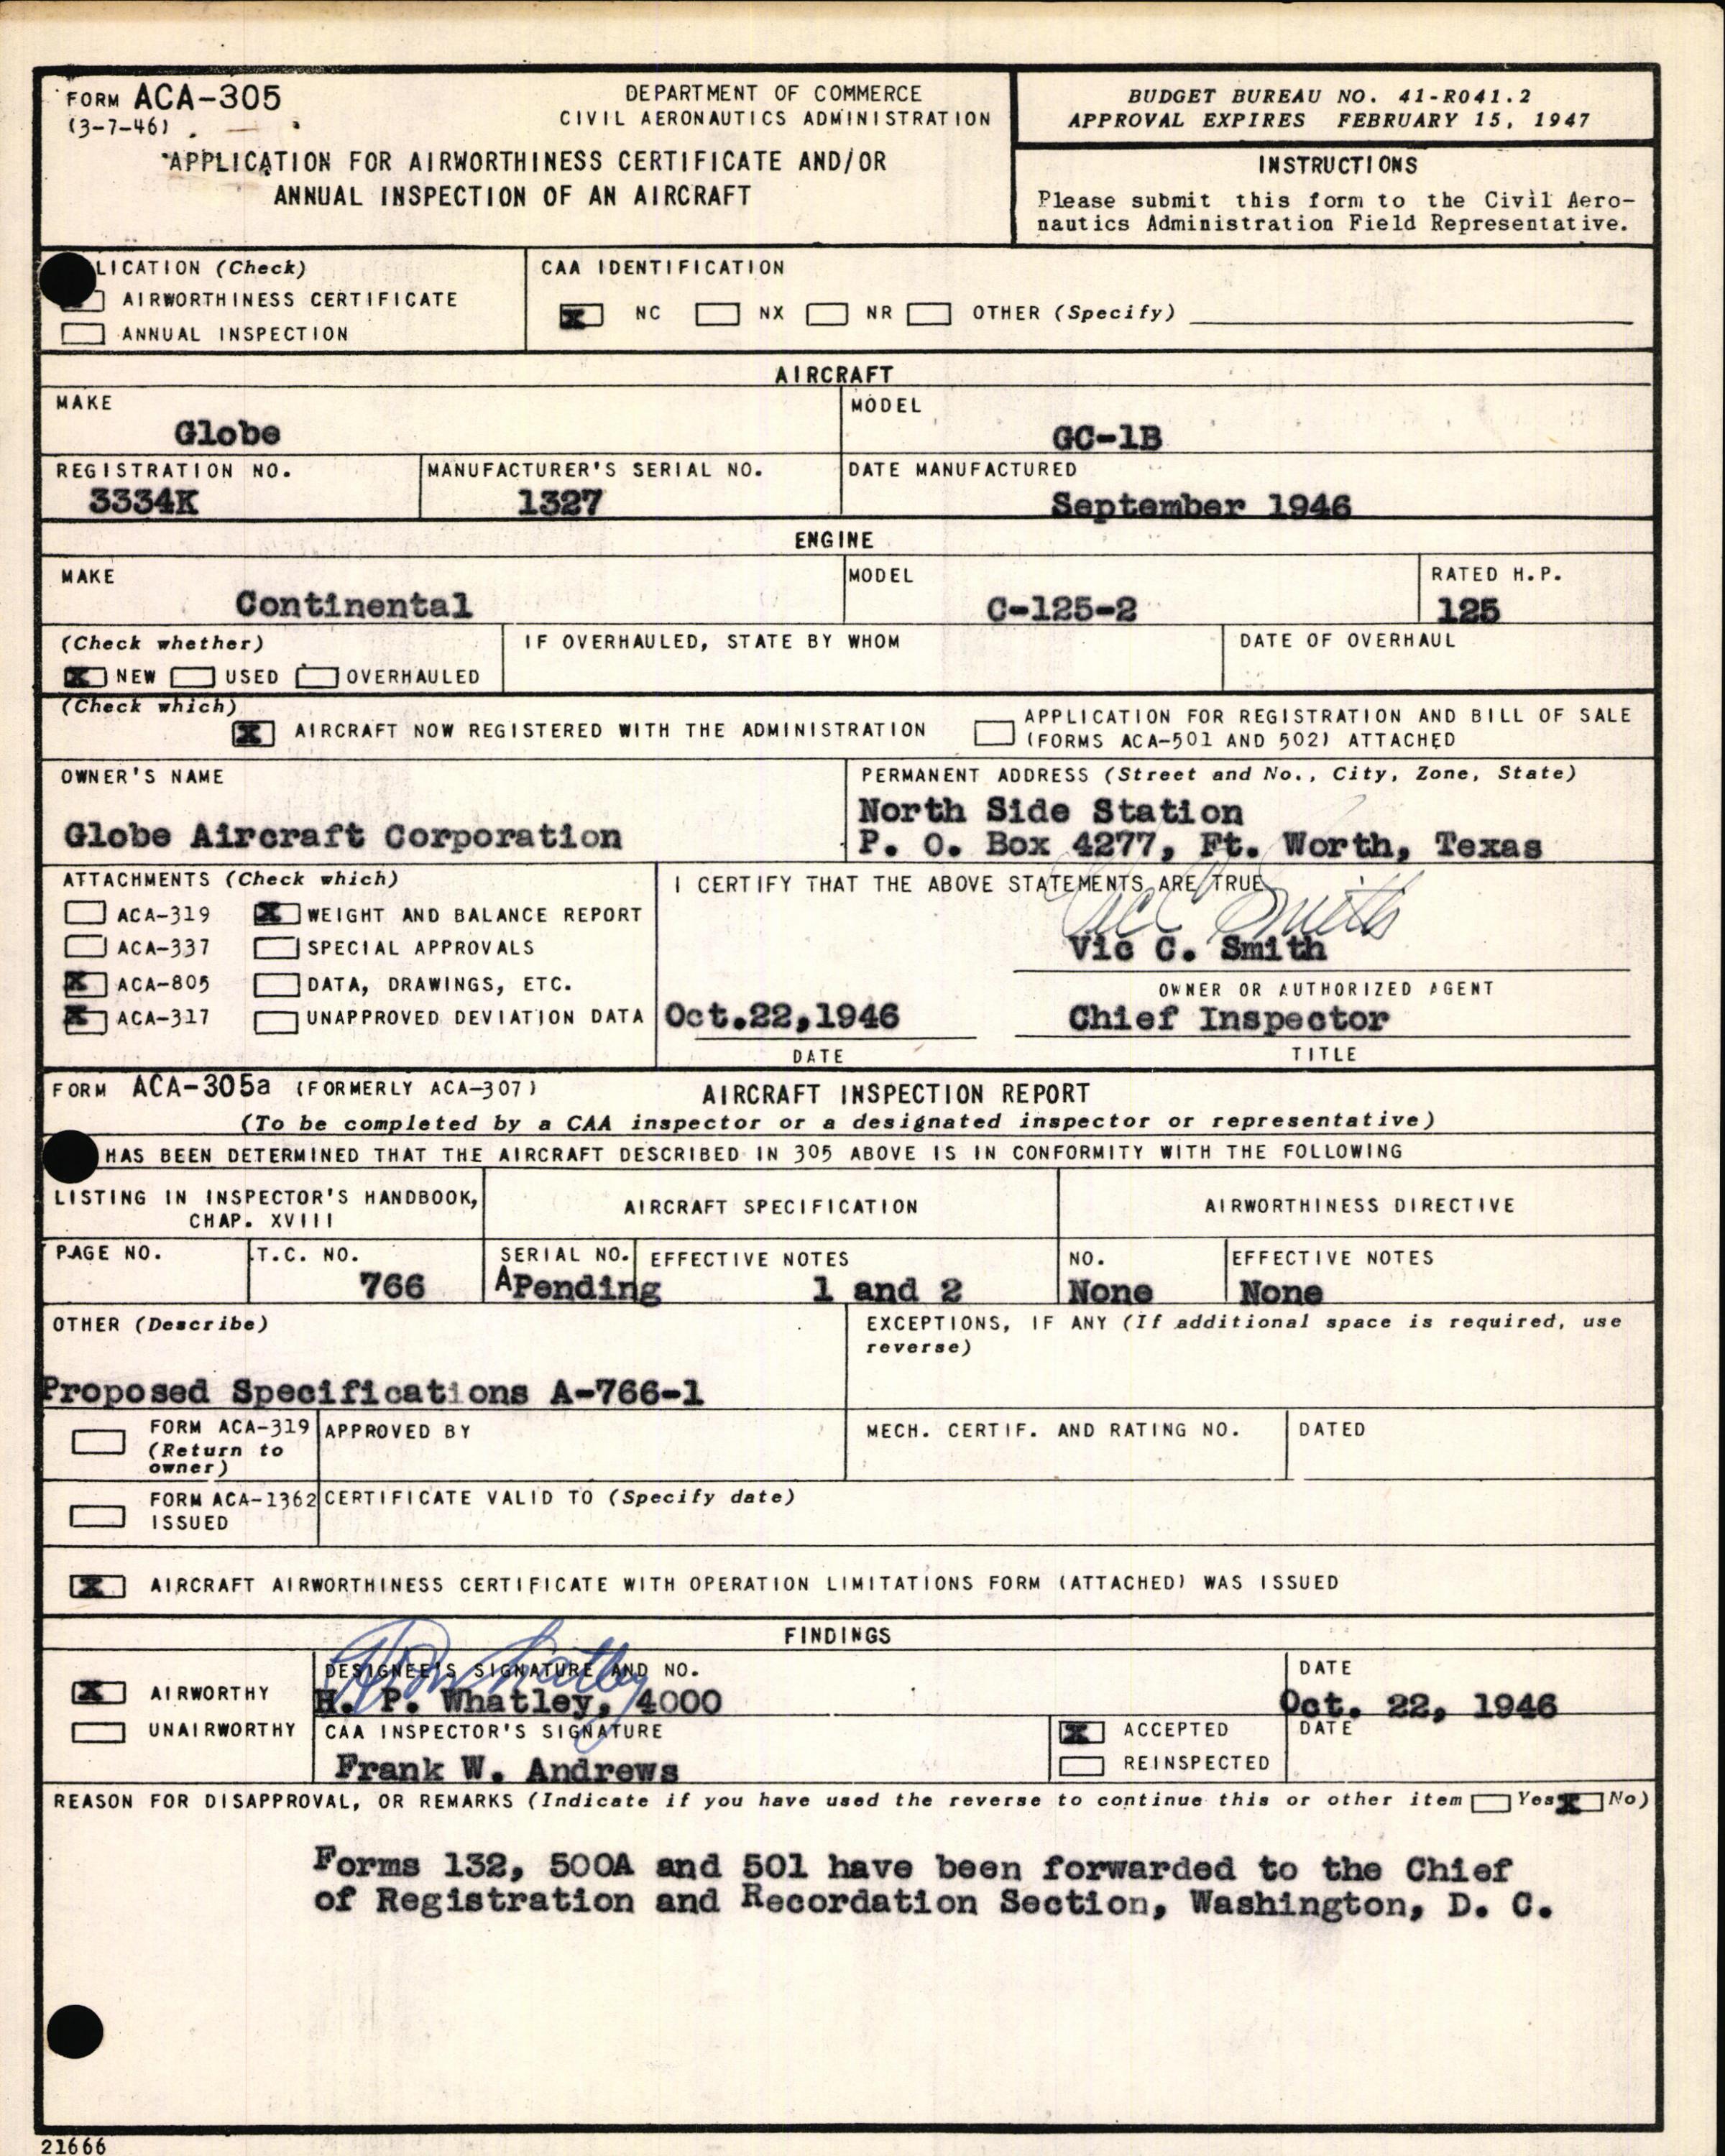 FORM ACA-305
(3-7-46)
DEPARTMENT OF COMMERCE
CIVIL AERONAUTICS ADMINISTRATION
APPLICATION FOR AIRWORTHINESS CERTIFICATE AND/OR
ANNUAL INSPECTION OF AN AIRCRAFT
BUDGET BUREAU NO. 41-R041.2
APPROVAL EXPIRES FEBRUARY 15, 1947
INSTRUCTIONS
Please submit this form to the Civil Aero-
nautics Administration Field Representative.
LICATION (Check)
AIRWORTHINESS CERTIFICATE
ANNUAL INSPECTION
CAA IDENTIFICATION
X NC NX NR OTHER (Specify)
AIRCRAFT
MAKE
Globe
MODEL
GC-1B
REGISTRATION NO.
3334K
MANUFACTURER'S SERIAL NO.
1327
DATE MANUFACTURED
September 1946
ENGINE
MAKE
Continental
MODEL
C-125-2
RATED H.P.
125
(Check whether)
X NEW USED OVERHAULED
IF OVERHAULED, STATE BY WHOM
DATE OF OVERHAUL
(Check which)
X AIRCRAFT NOW REGISTERED WITH THE ADMINISTRATION
APPLICATION FOR REGISTRATION AND BILL OF SALE
(FORMS ACA-501 AND 502) ATTACHED
OWNER'S NAME
Globe Aircraft Corporation
PERMANENT ADDRESS (Street and No., City, Zone, State)
North Side Station
P. O. Box 4277, Ft. Worth, Texas
ATTACHMENTS (Check which)
ACA-319 X WEIGHT AND BALANCE REPORT
ACA-337 SPECIAL APPROVALS
X ACA-805 DATA, DRAWINGS, ETC.
X ACA-317 UNAPPROVED DEVIATION DATA
I CERTIFY THAT THE ABOVE STATEMENTS ARE TRUE
Vic C Smith
Vic C. Smith
OWNER OR AUTHORIZED AGENT
Oct.22,1946
DATE
Chief Inspector
TITLE
FORM ACA-305a (FORMERLY ACA-307)
AIRCRAFT INSPECTION REPORT
(To be completed by a CAA inspector or a designated inspector or representative)
HAS BEEN DETERMINED THAT THE AIRCRAFT DESCRIBED IN 305 ABOVE IS IN CONFORMITY WITH THE FOLLOWING
LISTING IN INSPECTOR'S HANDBOOK,
CHAP. XVIII
AIRCRAFT SPECIFICATION
AIRWORTHINESS DIRECTIVE
PAGE NO.
T.C. NO.
766
SERIAL NO.
APending
EFFECTIVE NOTES
1 and 2
NO.
None
EFFECTIVE NOTES
None
OTHER (Describe)
Proposed Specifications A-766-1
EXCEPTIONS, IF ANY (If additional space is required, use
reverse)
FORM ACA-319
(Return to
owner)
APPROVED BY
MECH. CERTIF. AND RATING NO.
DATED
FORM ACA-1362
ISSUED
CERTIFICATE VALID TO (Specify date)
X AIRCRAFT AIRWORTHINESS CERTIFICATE WITH OPERATION LIMITATIONS FORM (ATTACHED) WAS ISSUED
FINDINGS
X AIRWORTHY
UNAIRWORTHY
DESIGNEE'S SIGNATURE AND NO.
HP Whatley
H. P. Whatley, 4000
DATE
Oct. 22, 1946
CAA INSPECTOR'S SIGNATURE
Frank W. Andrews
X ACCEPTED
REINSPECTED
DATE
REASON FOR DISAPPROVAL, OR REMARKS (Indicate if you have used the reverse to continue this or other item Yes X No)
Forms 132, 500A and 501 have been forwarded to the Chief
of Registration and Recordation Section, Washington, D. C.
21666